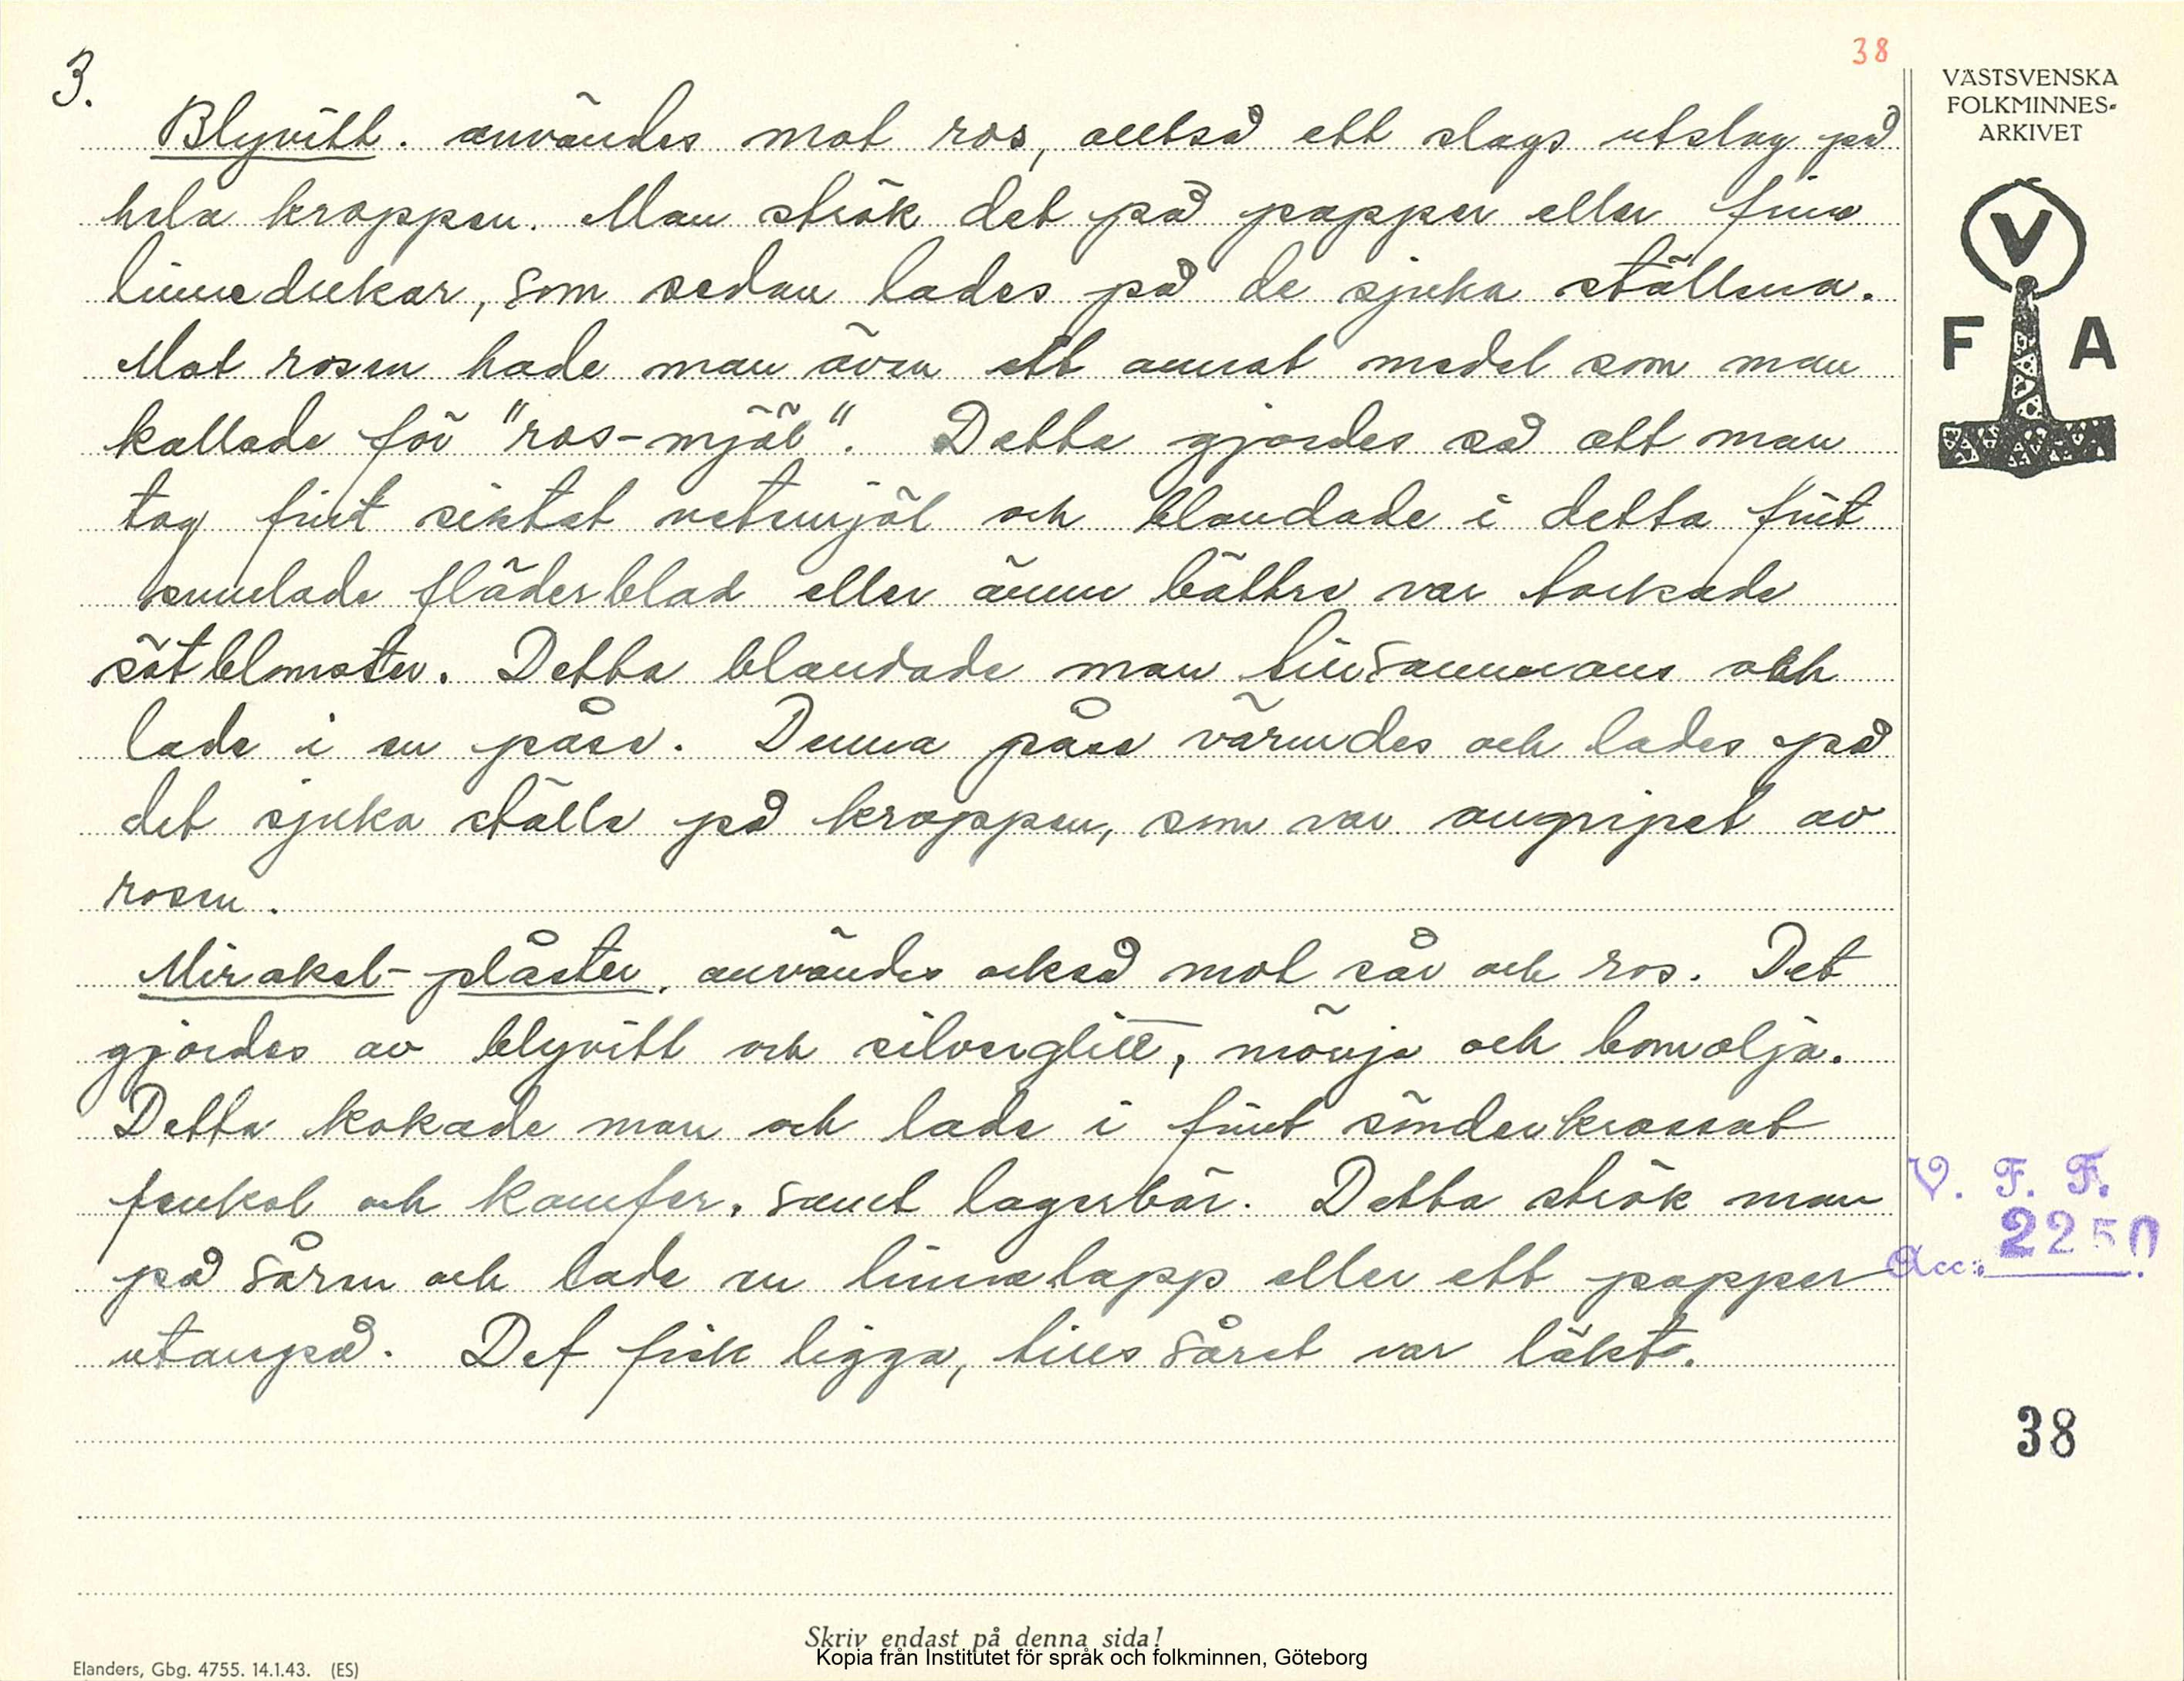 3.
38
Blyvitt. användes mot ros, alltså ett slags utslag på
hela kroppen. Man strök det på papper eller fina
linnedukar, som sedan lades på de sjuka ställena.
Mot rosen hade man även ett annat medel som man
kallade för "ros-mjöl". Detta gjordes så att man
tog fint siktat vetemjöl och blandade i detta fint
smulade fläderblad eller ännu bättre var torkade
sötblomster. Detta blandade man tillsammans och
lade i en påse. Denna påse värmdes och lades på
det sjuka ställe på kroppen, som var angripet av
rosen.
Mirakel-plåster. användes också mot sår och ros. Det
gjordes av blyvitt och silverglitt, mönja och bomolja.
Detta kokade man och lade i fint sönderkrossat
fenkol och kamfer, samt lagerbär. Detta strök man
på såren och lade en linnelapp eller ett papper
utanpå. Det fick ligga, tills såret var läkt.
VÄSTSVENSKA
FOLKMINNES-
ARKIVET
V
F A
V. F. F.
2250
Acc:
38
Skriv endast på denna sida!
Kopia från Institutet för språk och folkminnen, Göteborg
Elanders, Gbg. 4755. 14.1.43. (ES)